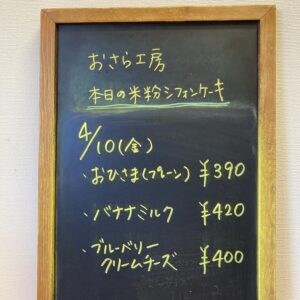 おさら工房
本日の米粉シフォンケーキ
4/10(金)
・おひさま(プレーン) ¥390
・バナナミルク ¥420
・ブルーベリー
クリームチーズ ¥400